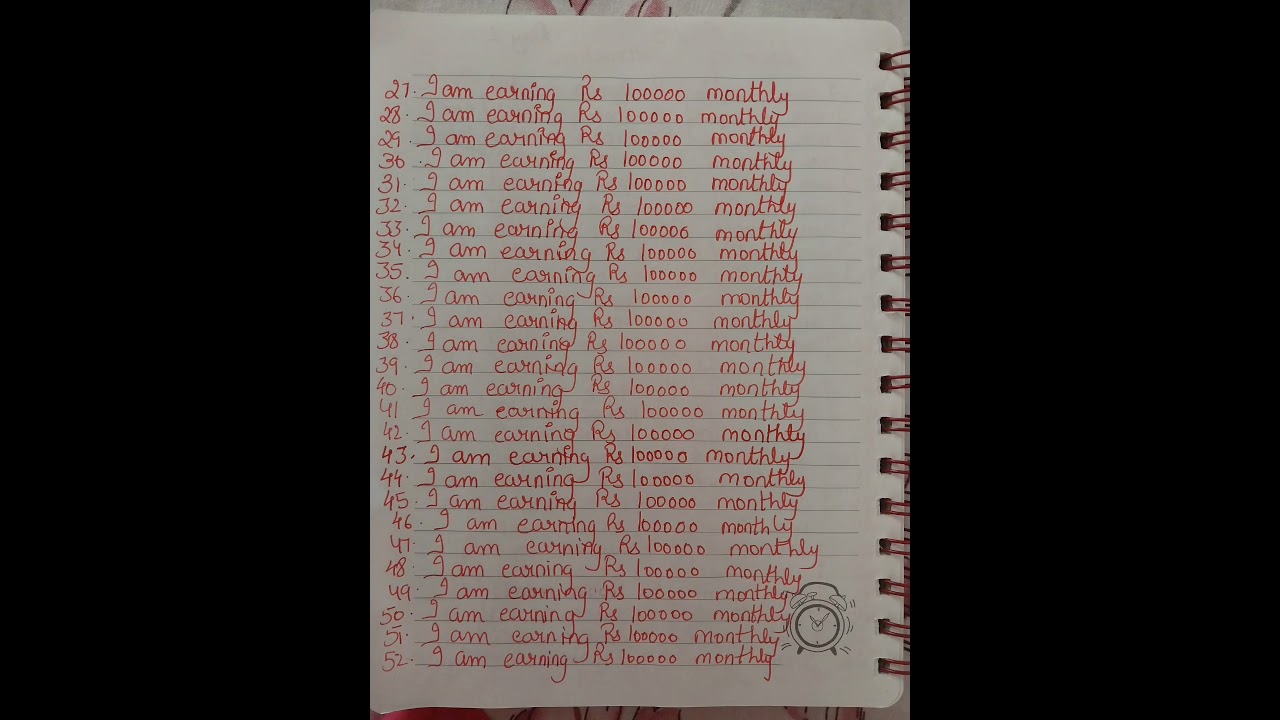 27. I am earning Rs 100000 monthly
28. I am earning Rs 100000 monthly
29. I am earning Rs 100000 monthly
30. I am earning Rs 100000 monthly
31. I am earning Rs 100000 monthly
32. I am earning Rs 100000 monthly
33. I am earning Rs 100000 monthly
34. I am earning Rs 100000 monthly
35. I am earning Rs 100000 monthly
36. I am earning Rs 100000 monthly
37. I am earning Rs 100000 monthly
38. I am earning Rs 100000 monthly
39. I am earning Rs 100000 monthly
40. I am earning Rs 100000 monthly
41 I am earning Rs 100000 monthly
42. I am earning Rs 100000 monthly
43. I am earning Rs 100000 monthly
44. I am earning Rs 100000 monthly
45. I am earning Rs 100000 monthly
46. I am earning Rs 100000 monthly
47. I am earning Rs 100000 monthly
48. I am earning Rs 100000 monthly
49. I am earning Rs 100000 monthly
50. I am earning Rs 100000 monthly
51. I am earning Rs 100000 monthly
52. I am earning Rs 100000 monthly